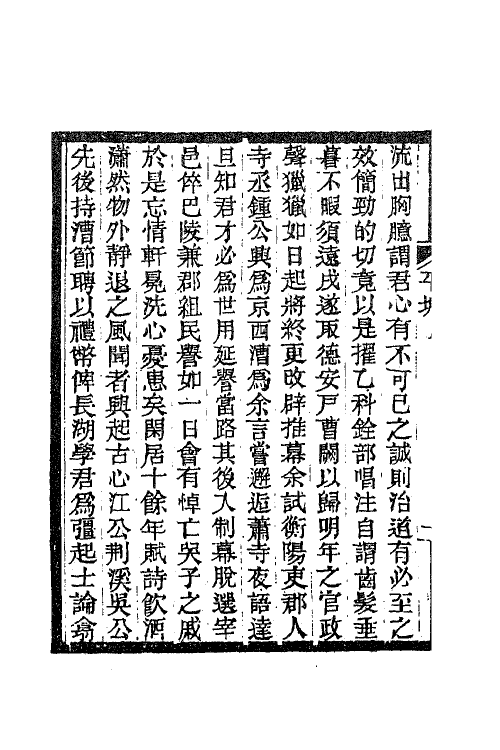 流出胸臆謂君心有不可已之誠則治道有必至之
效簡勁的切竟以是擢乙科銓部唱注自謂齒髮垂
暮不暇須遠戍遂取德安戸曹闕以歸明年之官政
聲獵獵如日起將終更改辟推幕余試衡陽吏郡人
寺丞鍾公興爲京西漕爲余言嘗邂逅蕭寺夜語達
旦知君才必爲世用延譽當路其後入制幕脫選宰
邑倅巴陵兼郡組民譽如一日會有悼亡哭子之戚
於是忘情軒冕洗心憂患矣閑居十餘年賦詩飮酒
瀟然物外靜退之風聞者興起古心江公荆溪吳公
先後持漕節聘以禮幣俾長湖學君爲彊起士論翕